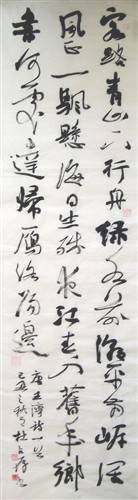 客路青山下行舟綠水前潮平兩岸闊
風正一颿懸海日生殘夜江春入舊年鄉
書何處達歸雁洛陽邊
唐王灣詩一首
己丑之秋月杜